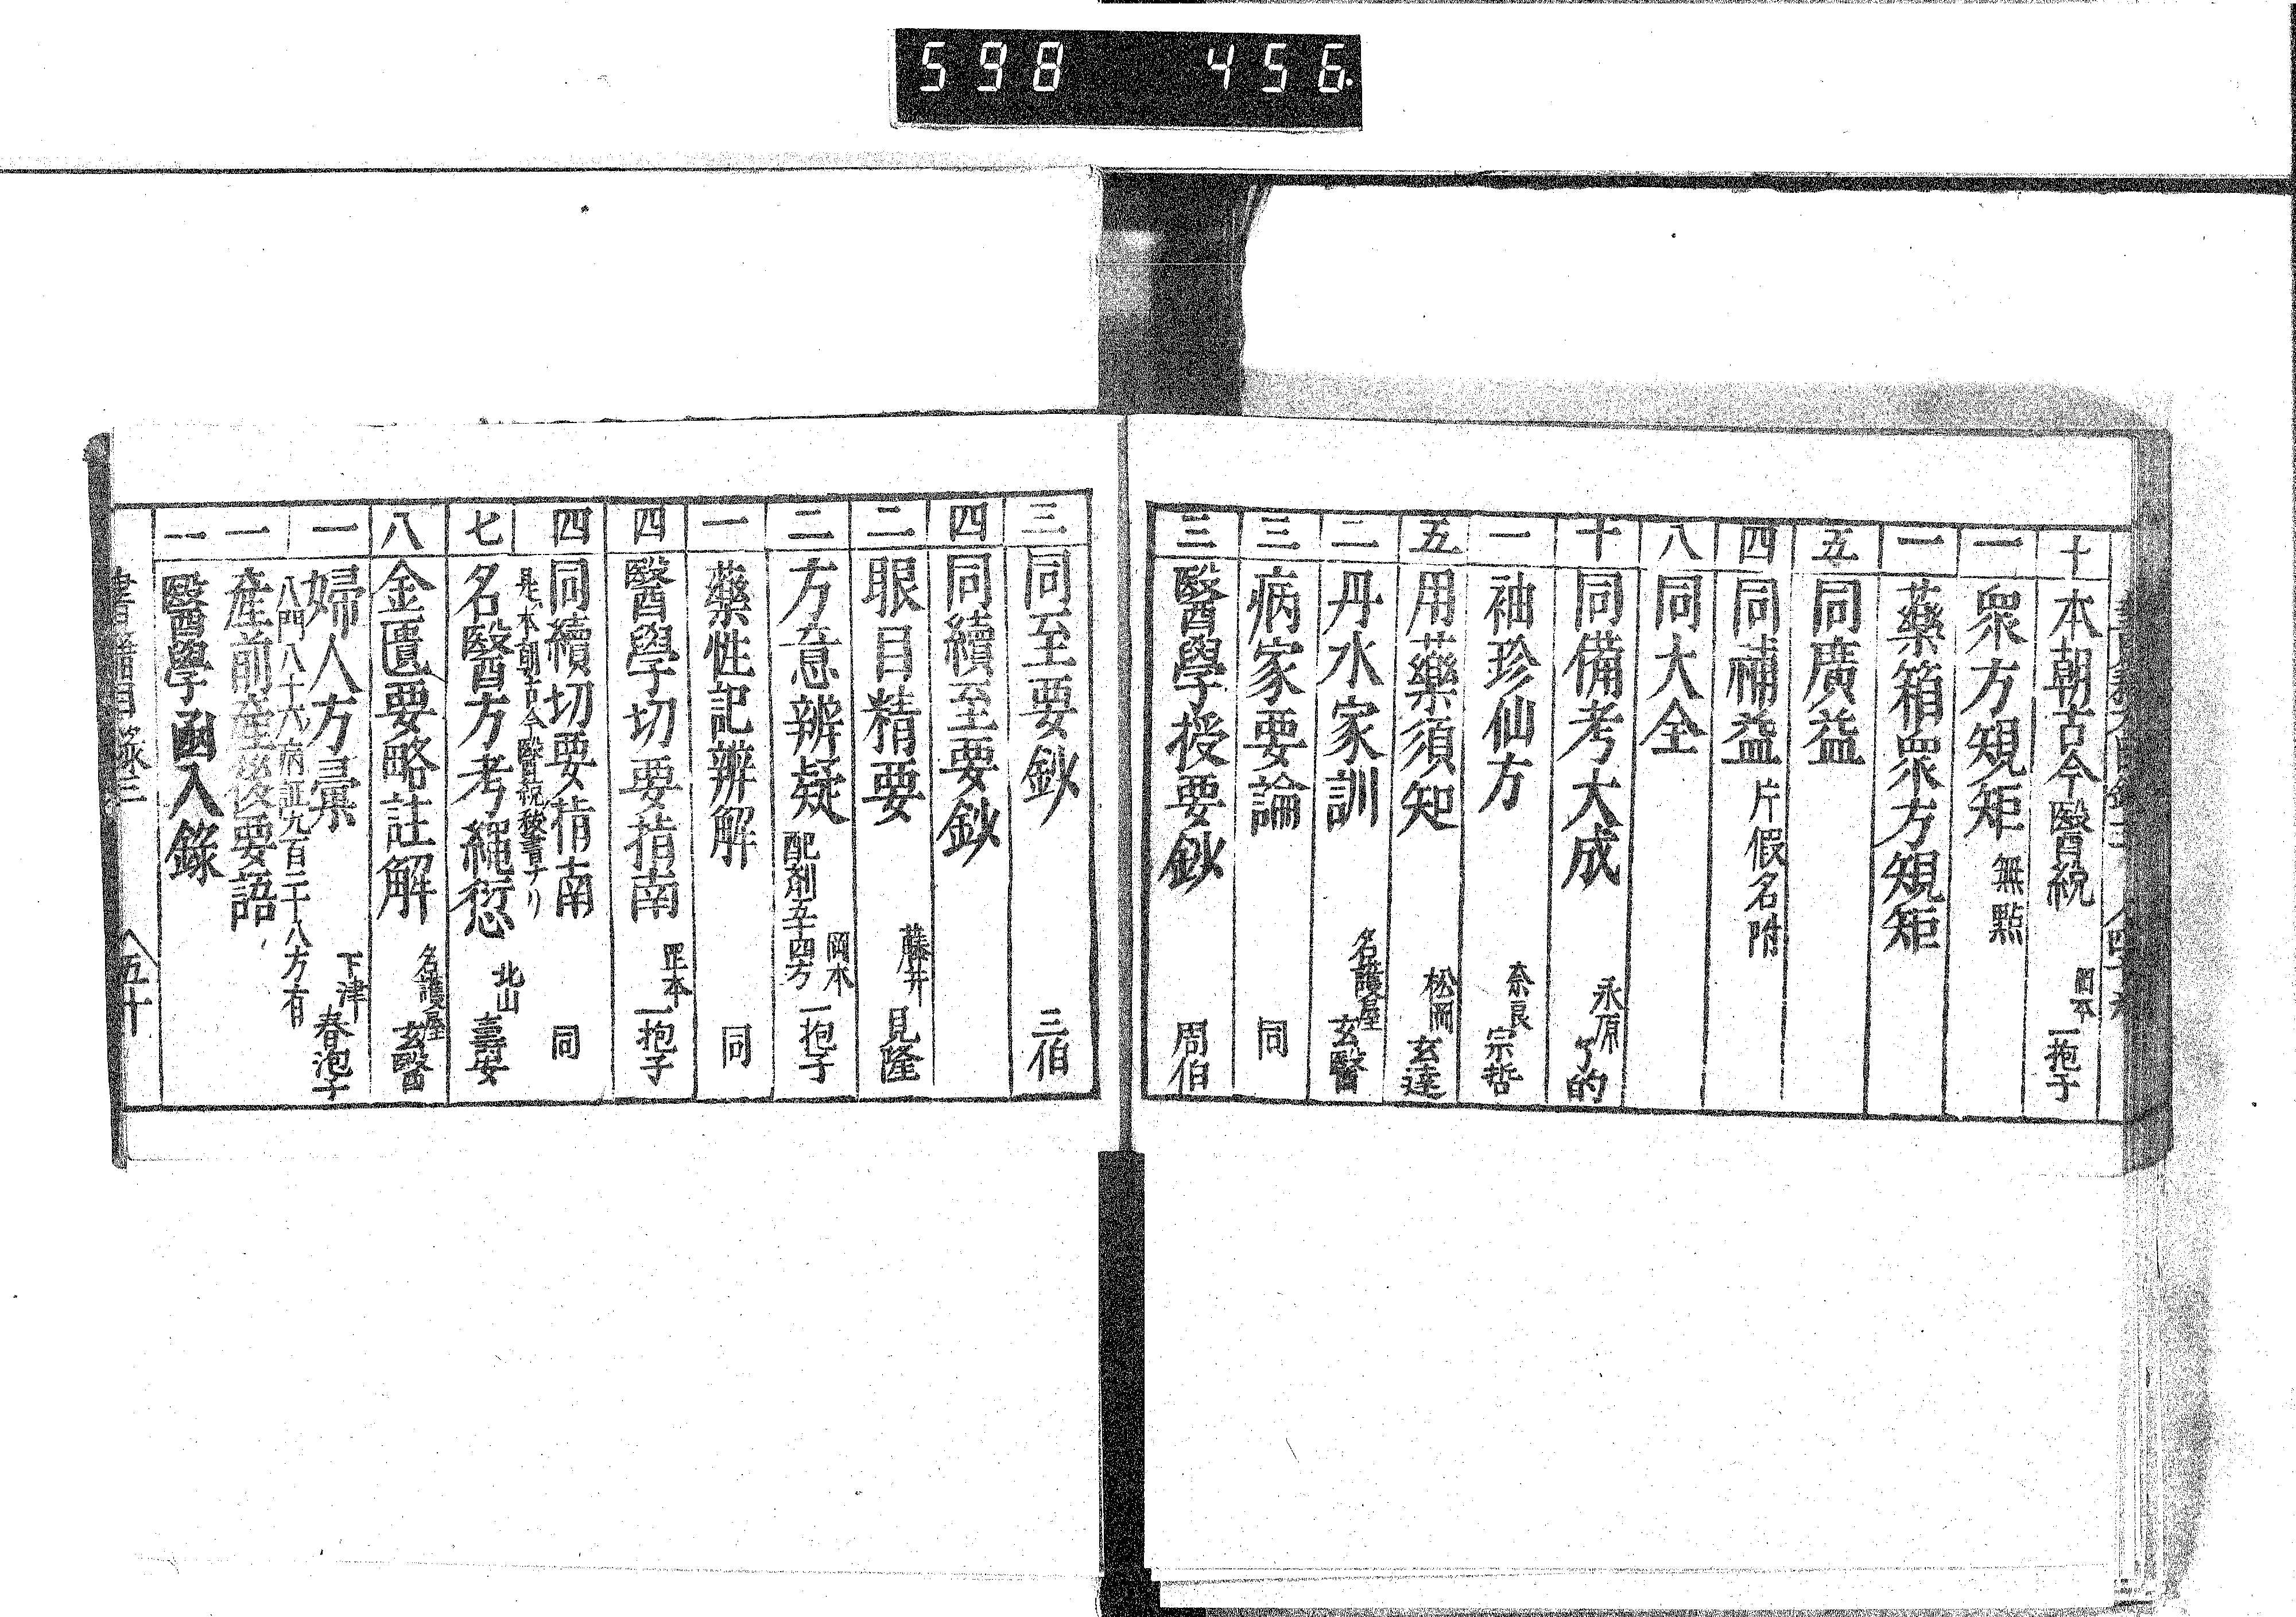 598 456.
十 本朝古今醫統 岡本 一抱子
一 衆方規矩 無點
一 藥箱衆方規矩
五 同廣益
四 同補益 片假名附
八 同大全
十 同備考大成 永原 了的
一 袖珍仙方 奈良 宗哲
五 用藥須知 松岡 玄達
二 丹水家訓 名護屋 玄醫
三 病家要論 同
三 醫學授要鈔 周伯
三 同至要鈔 三伯
四 同續至要鈔
二 眼目精要 藤井 見隆
二 方意辨疑 配剤五十四方 岡本 一抱子
一 藥性記辨解 同
四 醫學切要指南 岡本 一抱子
四 同續切要指南 同
是ハ本朝古今醫統秘書ナリ
七 名醫方考繩愆 北山 壽安
八 金匱要略註解 名護屋 玄醫
一 婦人方彙 下津 春泡子
八門八十六病証九百三十八方有
一 產前產後要語
二 醫學函入錄
書籍目錄三 五十